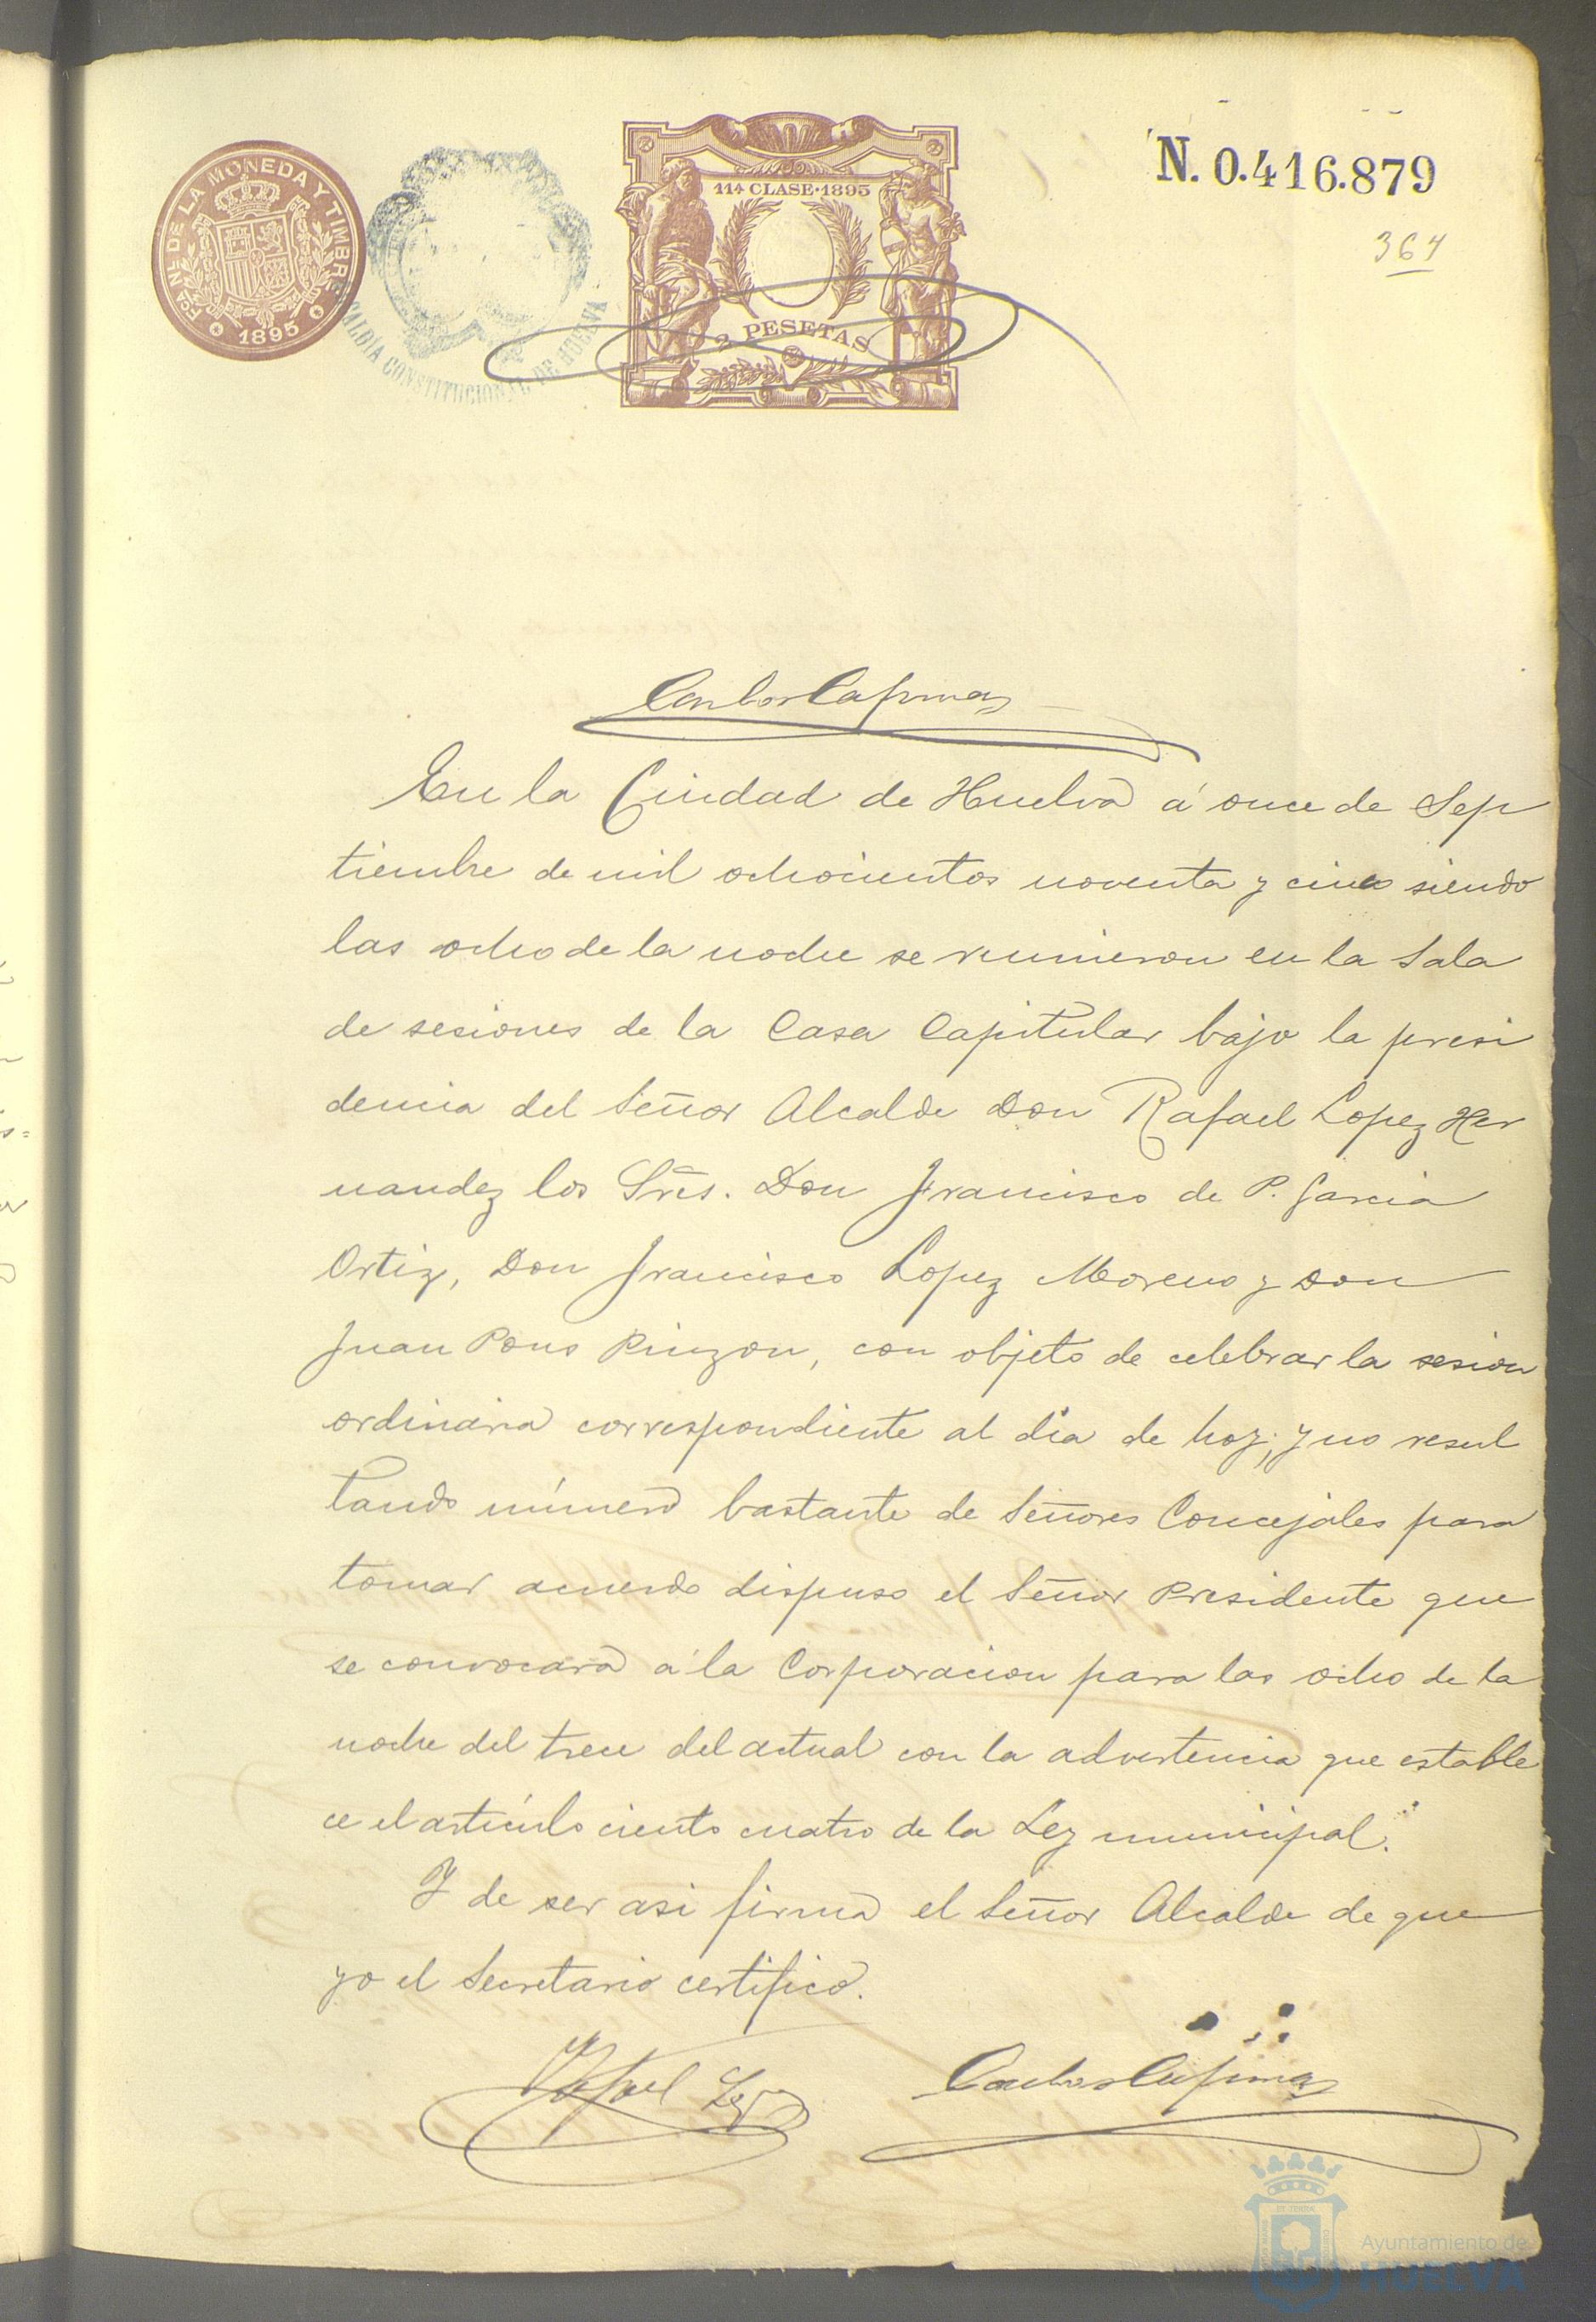 FCA NL DE LA MONEDA Y TIMBRE
1895
ALCALDIA CONSTITUCIONAL DE HUELVA
11ª CLASE·1895
2 PESETAS
N. 0.416.879
364
En la Ciudad de Huelva á once de Sep
tiembre de mil ochocientos noventa y cinco siendo
las ocho de la noche se reunieron en la Sala
de sesiones de la Casa Capitular bajo la presi
dencia del Señor Alcalde Don Rafael Lopez Her
nandez los Sres. Don Francisco de P. Garcia
Ortiz, Don Francisco Lopez Moreno y Don
Juan Pons Pinzon, con objeto de celebrar la sesion
ordinaria correspondiente al dia de hoy; y no resul
tando número bastante de Señores Concejales para
tomar acuerdo dispuso el Señor Presidente que
se convocara á la Corporacion para las ocho de la
noche del trece del actual con la advertencia que estable
ce el artículo ciento cuatro de la Ley municipal.
Y de ser asi firma el Señor Alcalde de que
yo el Secretario certifico.
Rafael Lopez
Ayuntamiento de
HUELVA